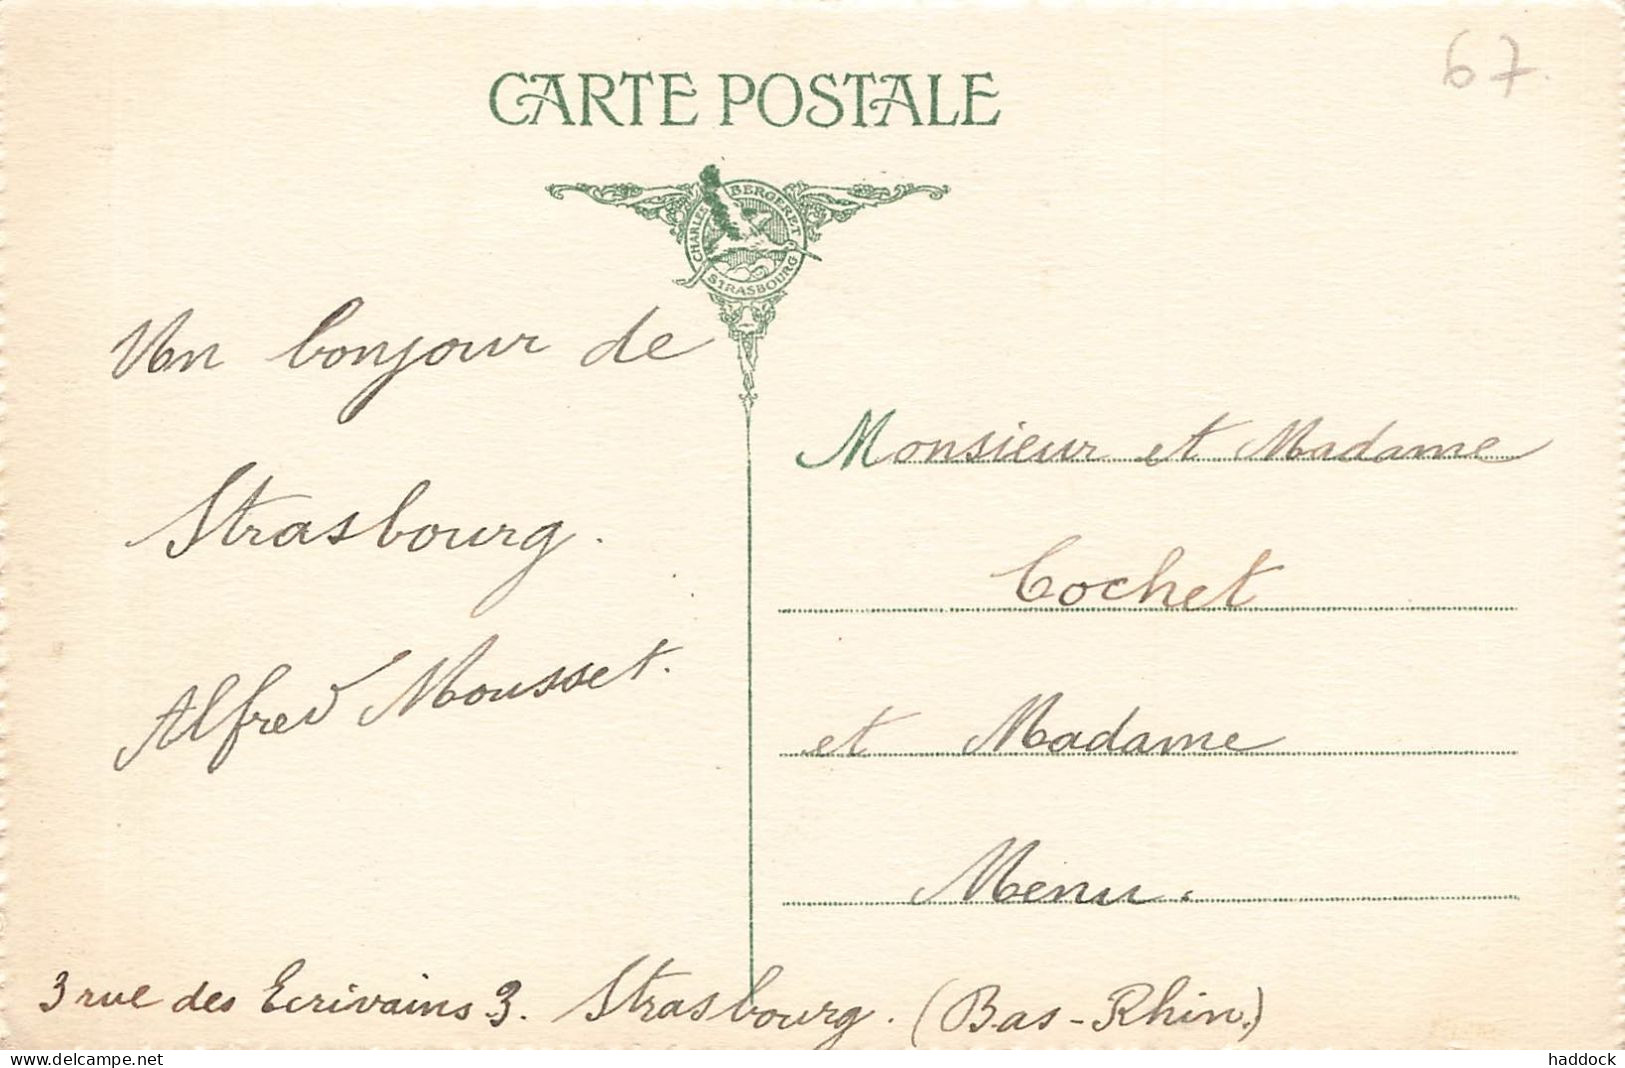 67.
CARTE POSTALE
CHARLES BERGERET
STRASBOURG
Un bonjour de
Strasbourg.
Alfred Mousset.
Monsieur et Madame
Cochet
et Madame
Menu.
3 rue des Ecrivains 3. Strasbourg. (Bas-Rhin.)
www.delcampe.net
haddock